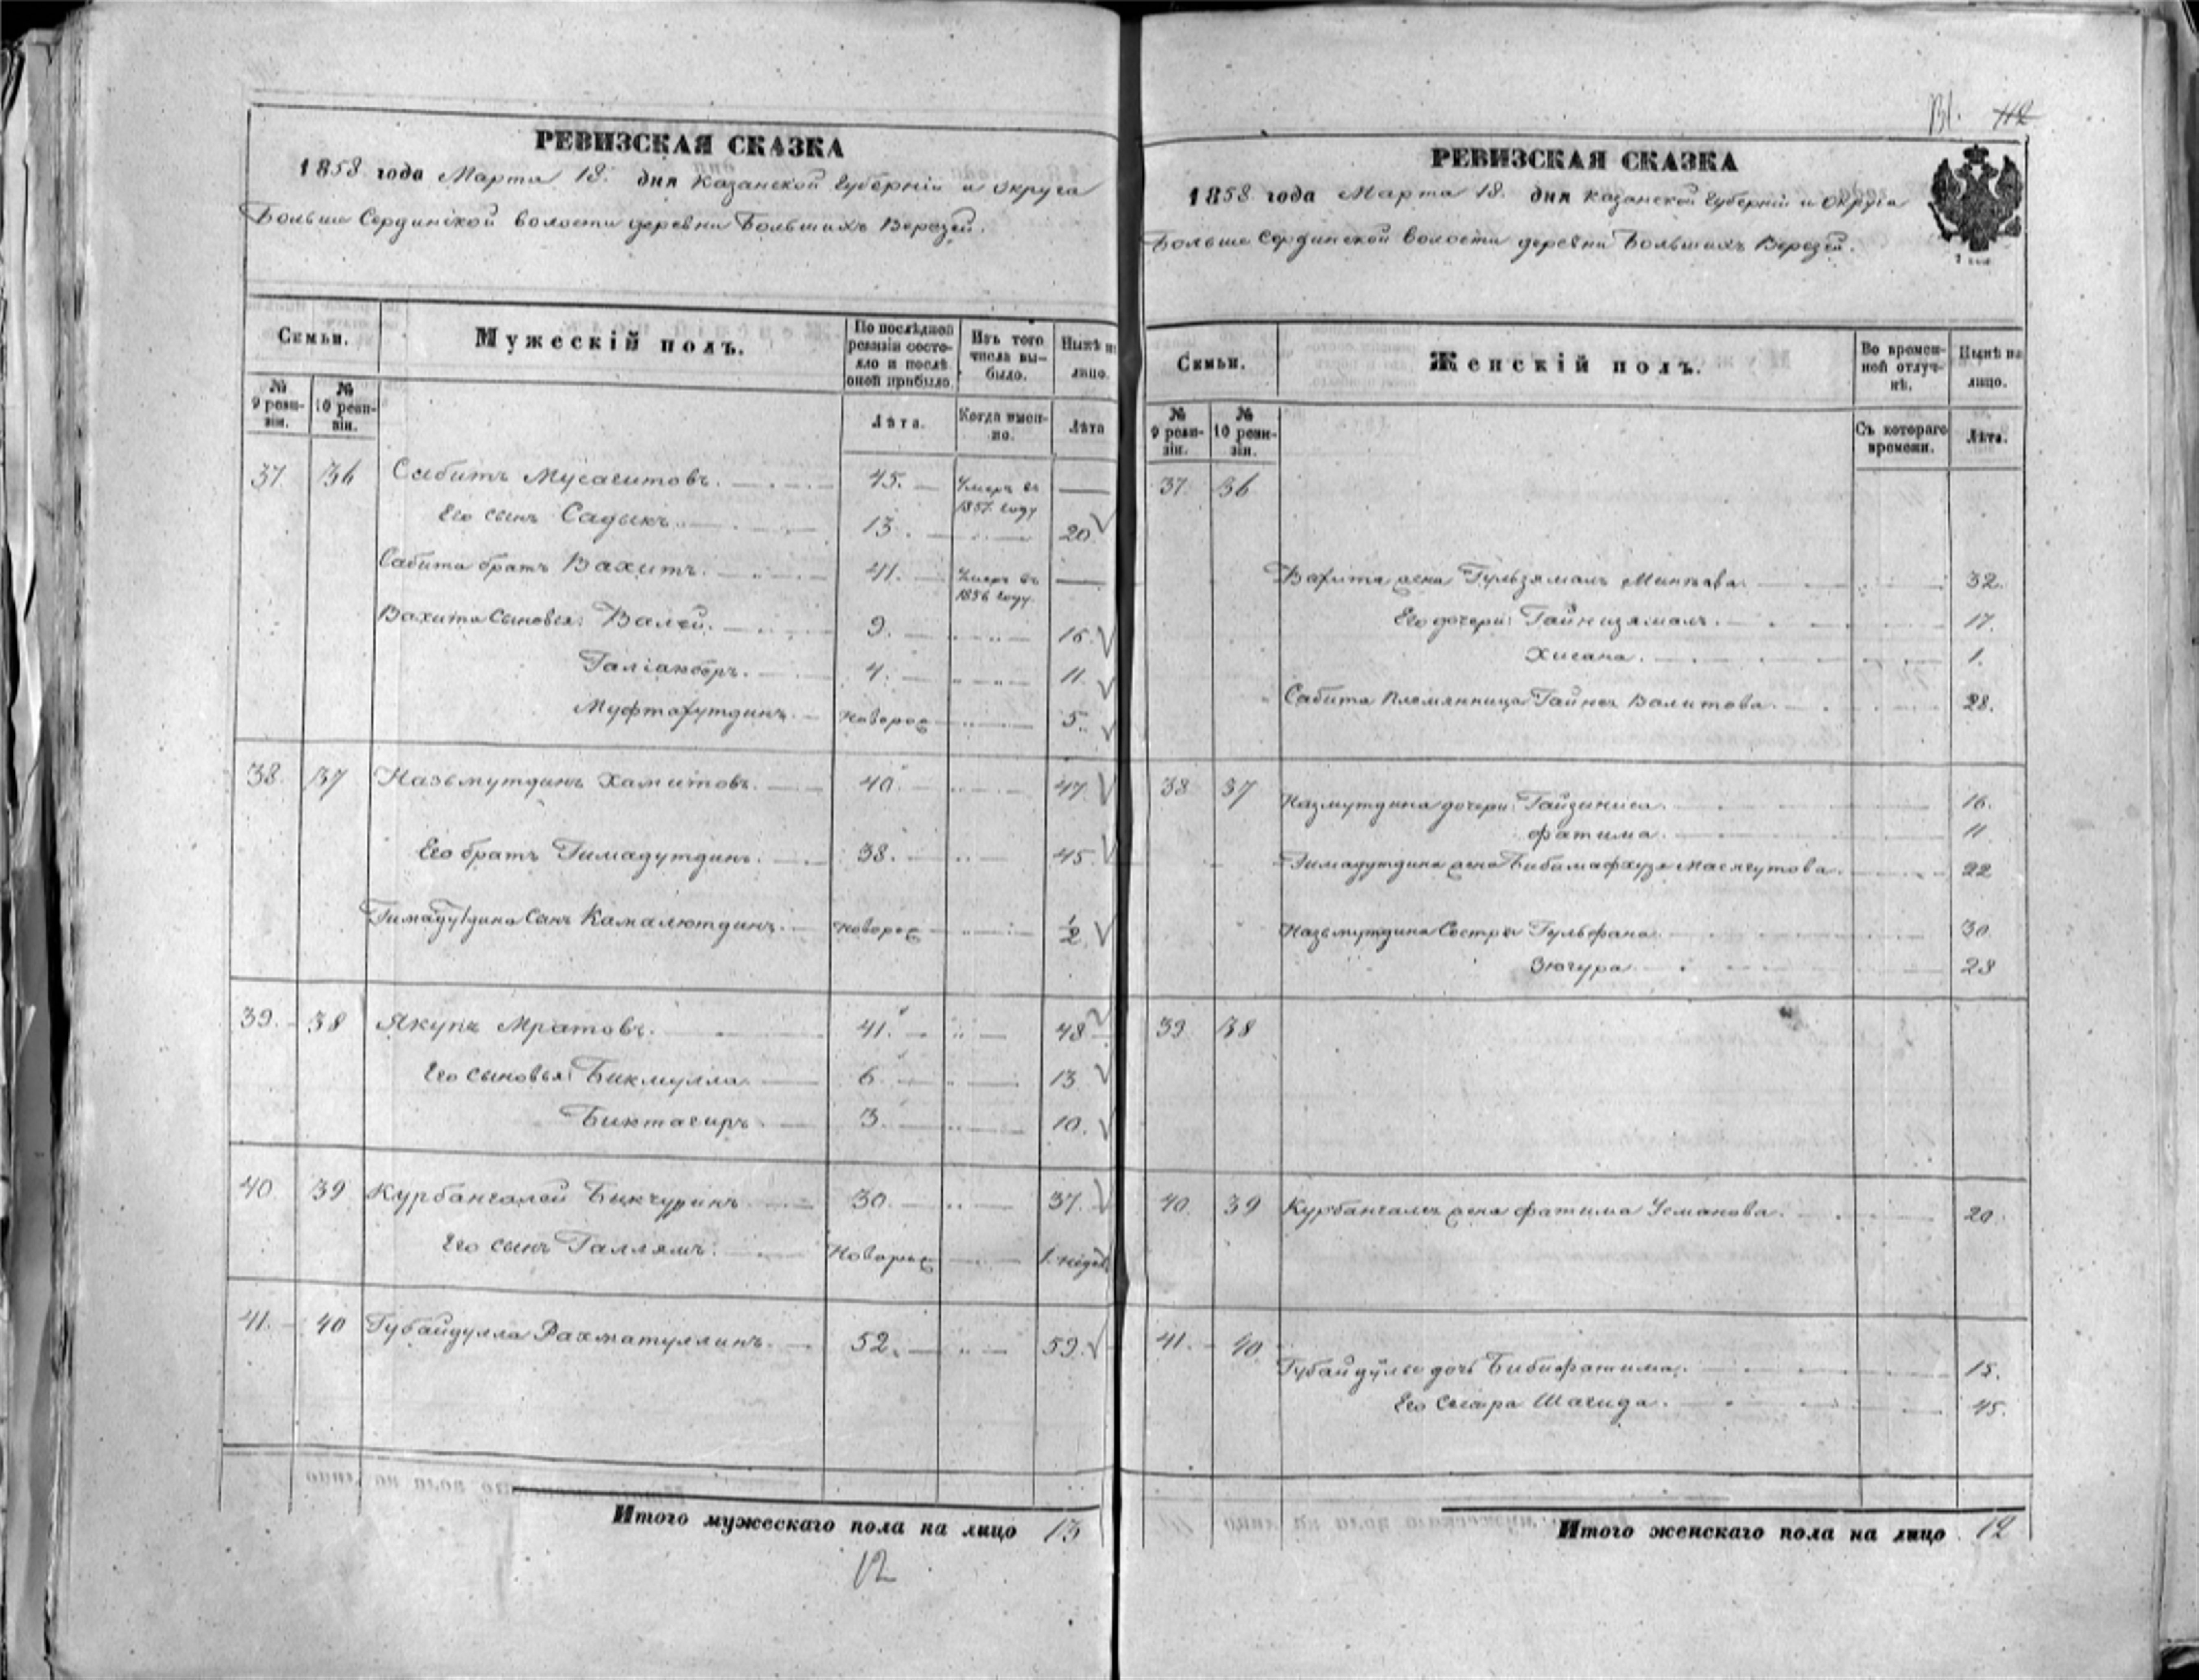 131. 112
РЕВИЗСКАЯ СКАЗКА
1858 года Марта 18. дня Казанской Губерніи и Округа
Больше Сердинской волости деревни Большихъ Верезей.
Семьи.
Мужескій полъ.
По послѣдней ревизіи состояло и послѣ оной прибыло.
Изъ того числа выбыло.
Нынѣ на лицо.
№ 9 ревизіи.
№ 10 ревизіи.
Лѣта.
Когда именно.
Лѣта
37. 36 Сабитъ Мусагитовъ. 45. Умеръ въ 1857. году
Его сынъ Садыкъ. 13. 20.
Сабита братъ Вахитъ. 41. Умеръ въ 1856 году.
Вахита Сыновья: Валей. 9. 16.
Галіакберъ. 4. 11
Муфтахутдинъ. новорож 5.
38. 37 Назьмутдинъ Хамитовъ. 40. 47.
Его братъ Гимадутдинъ. 38. 45.
Гимадутдина Сынъ Камалютдинъ. новорож 1/2
39. 38 Якупъ Мратовъ. 41. 48
Его сыновья: Бикмулла 6. 13
Биктагиръ. 3. 10.
40. 39 Курбангалей Бикчуринъ 30. 37.
Его сынъ Галлямъ. Новорож 1. недел
41. 40 Губайдулла Рахматуллинъ. 52. 59.
Итого мужескаго пола на лицо 13
12
РЕВИЗСКАЯ СКАЗКА
1858. года Марта 18. дня Казанской Губерніи и Округа
Больше Сердинской волости деревни Большихъ Верезей.
Семьи.
Женскій полъ.
Во временной отлучкѣ.
Нынѣ на лицо.
№ 9 ревизіи.
№ 10 ревизіи.
Съ котораго времени.
Лѣта.
37. 36
Вахита жена Гульзямаль 32.
Его дочери: Гайнизямалъ. 17.
Хисана. 1.
Сабита Племянница Гайни Валитова. 28.
38 37 Назмутдина дочери: Гайзиниса. 16.
Фатима. 11
Гимадутдина жена Бибимафхузя Масягутова. 22
Назьмутдина Сестры Гульфана. 30.
Зюгура. 23
39 38
40. 39 Курбангалея жена Фатима Усманова. 20.
41. 40
Губайдулы дочь Бибифатима. 15.
Его Сестра Шагида. 45.
Итого женскаго пола на лицо 12